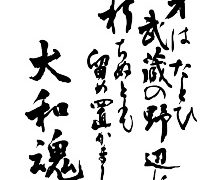 はたとひ
武蔵の野辺に
朽ちぬとも
留め置かまし
大和魂